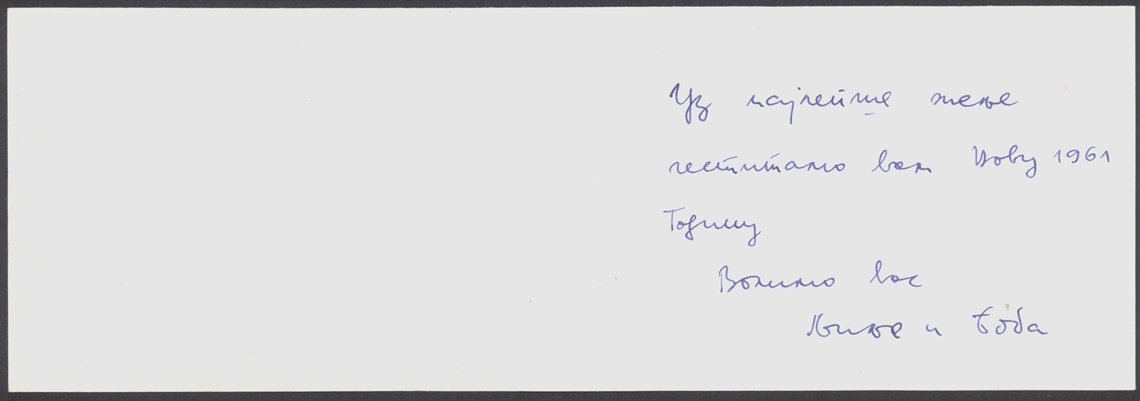 Уз најлепше жеље
честитамо вам Нову 1961
Годину
Волимо вас
и